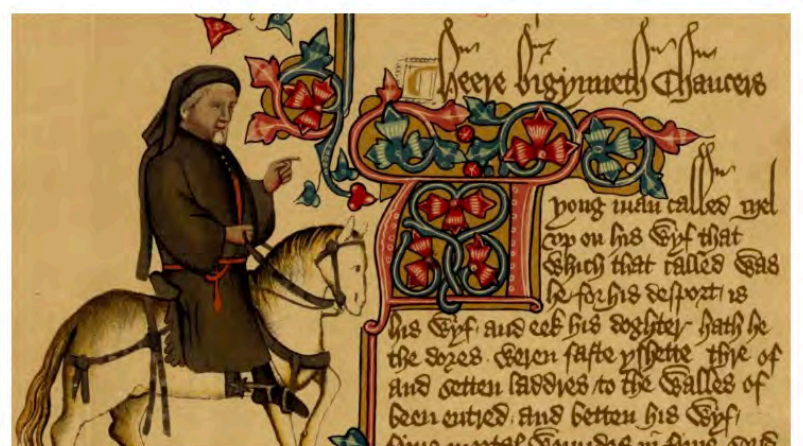 Heere bigynneth Chaucers
A
yong man called Mel
vp on his wyf that
Which that called was
he for his desport is
his wyf and eek his doghter hath he
the dores weren faste yshette thre of
and setten laddres to the walles of
been entred and betten his wyf
fyue mortal woundes in fyue